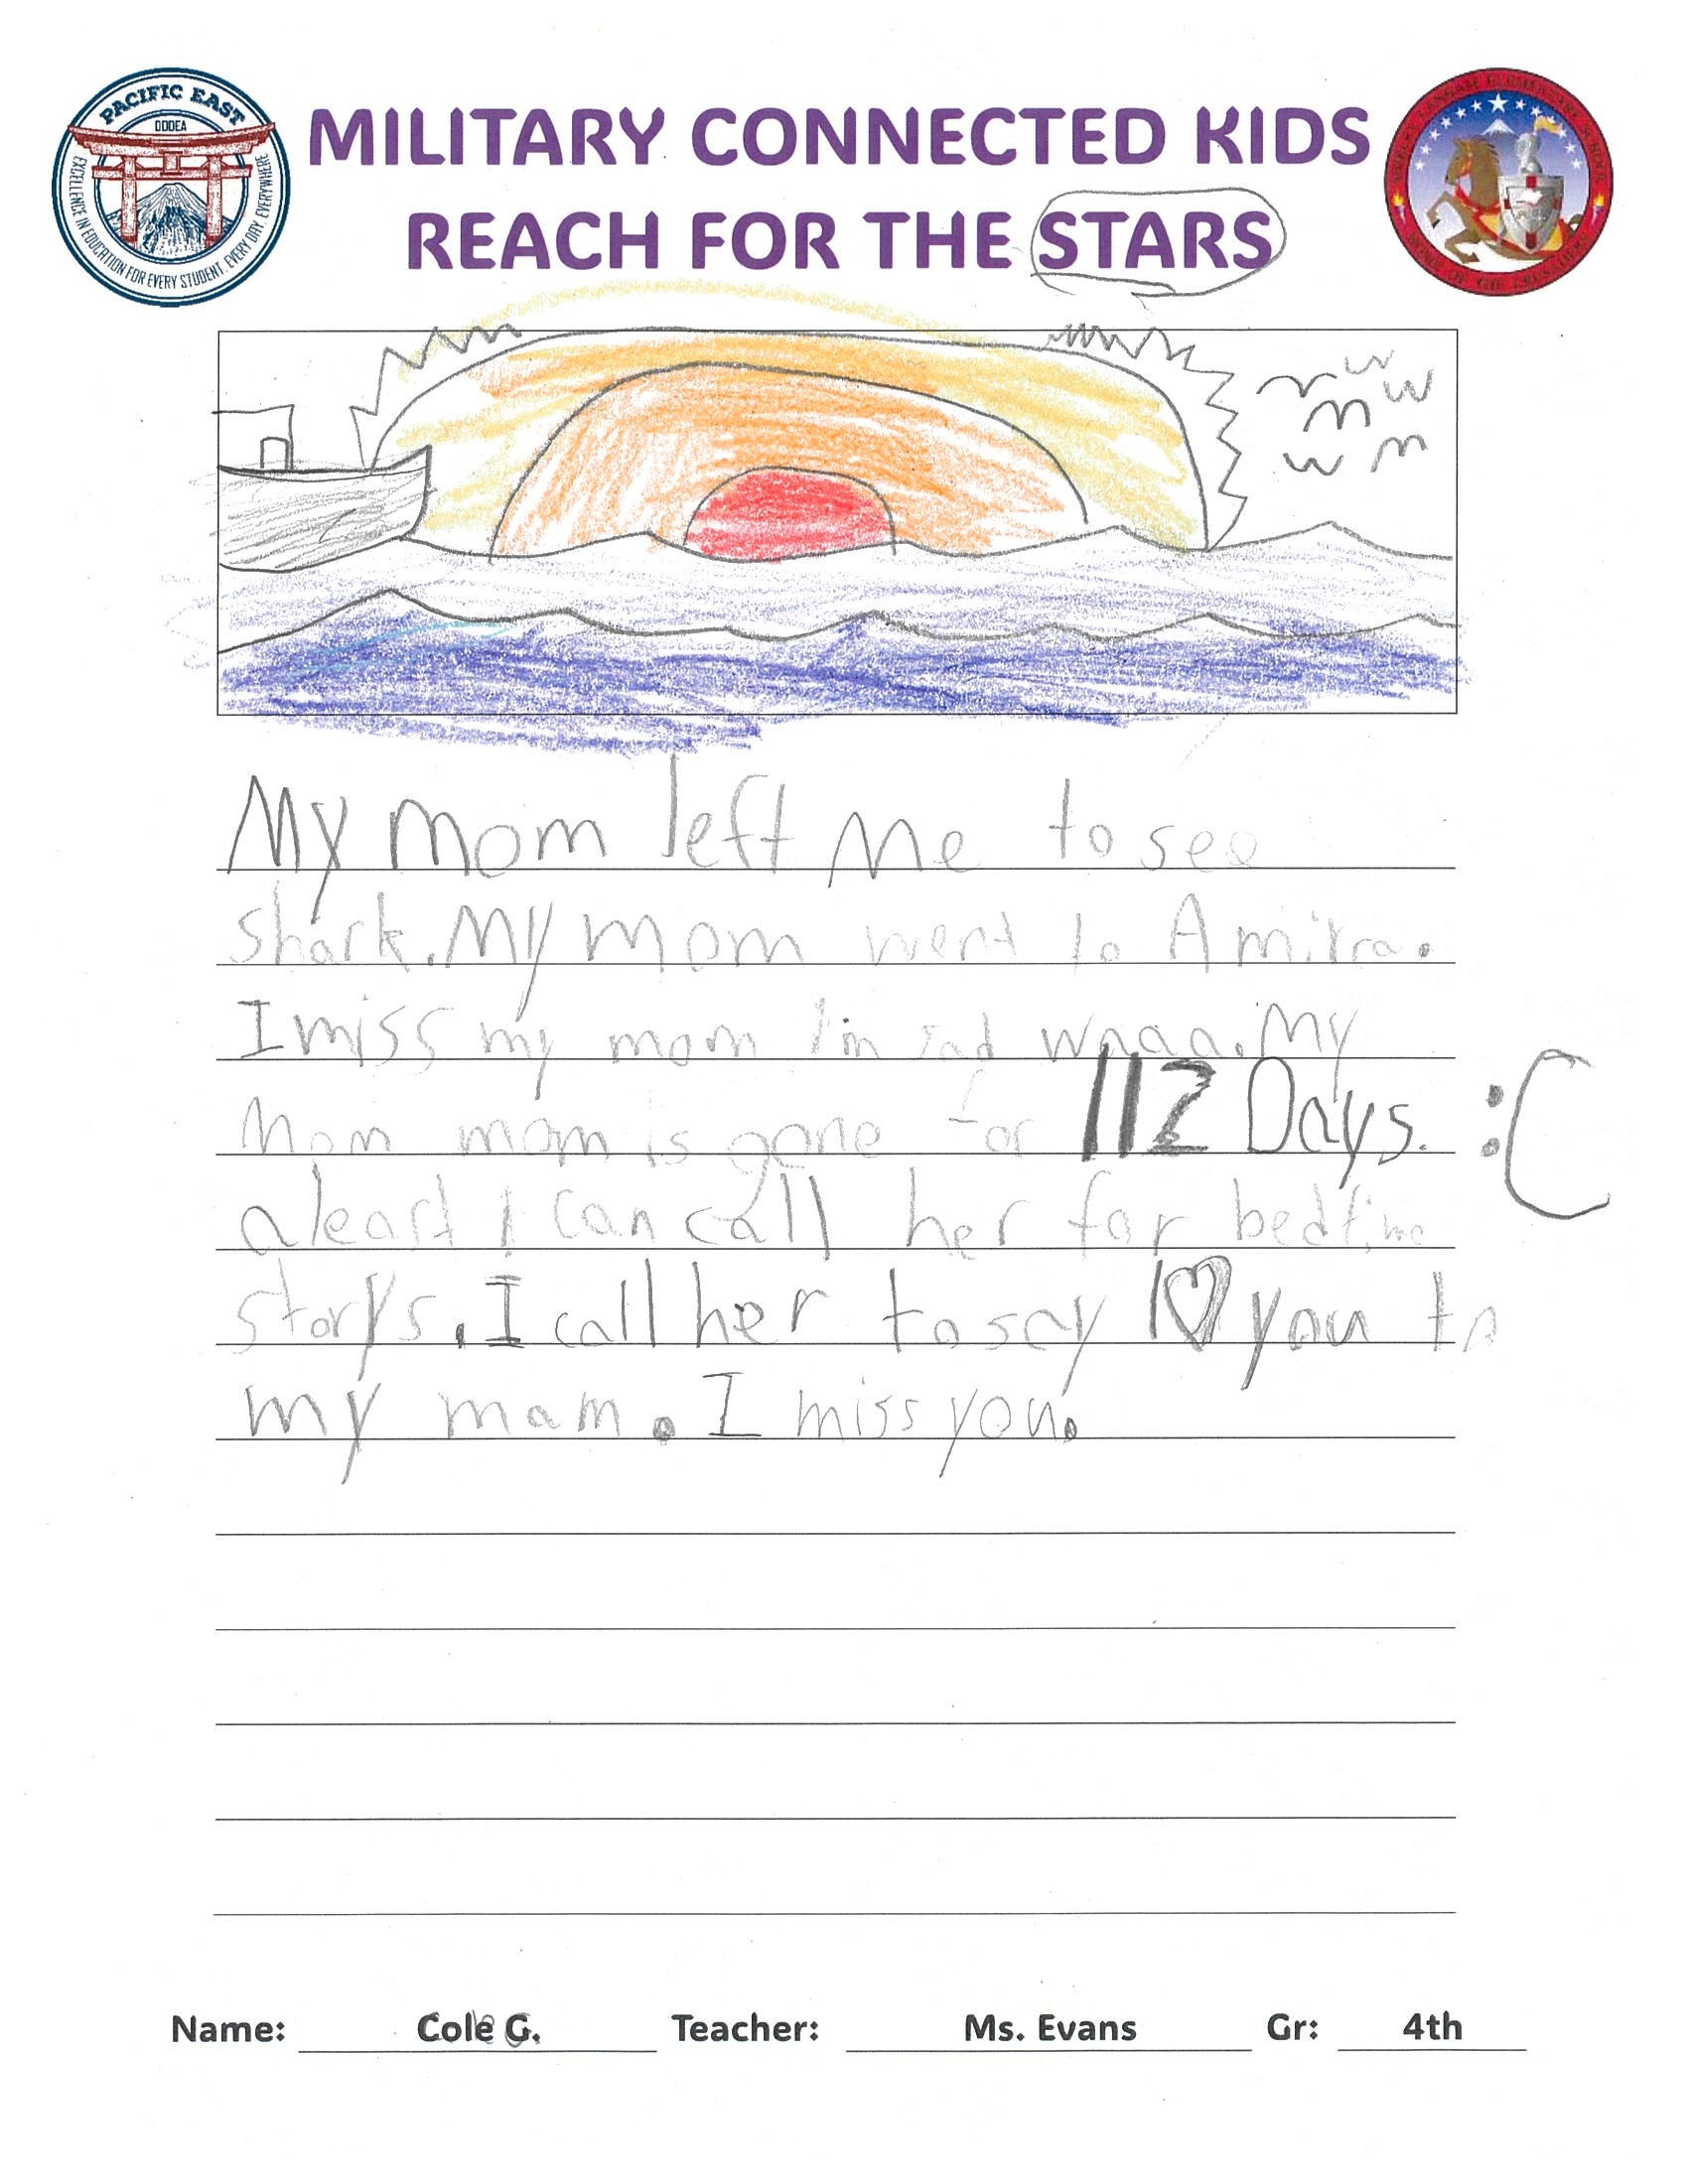 PACIFIC EAST
DODEA
EXCELLENCE IN EDUCATION FOR EVERY STUDENT, EVERY DAY, EVERYWHERE
MILITARY CONNECTED KIDS
REACH FOR THE STARS
My mom left me to see
shark. My mom went to Amirca.
I miss my mom I'm sad whaa. My
Mom mom is gone for 112 Days. :C
aleast I can call her for bedtime
storys. I call her to say I ♡ you to
my mam. I miss you.
Name: Cole G. Teacher: Ms. Evans Gr: 4th